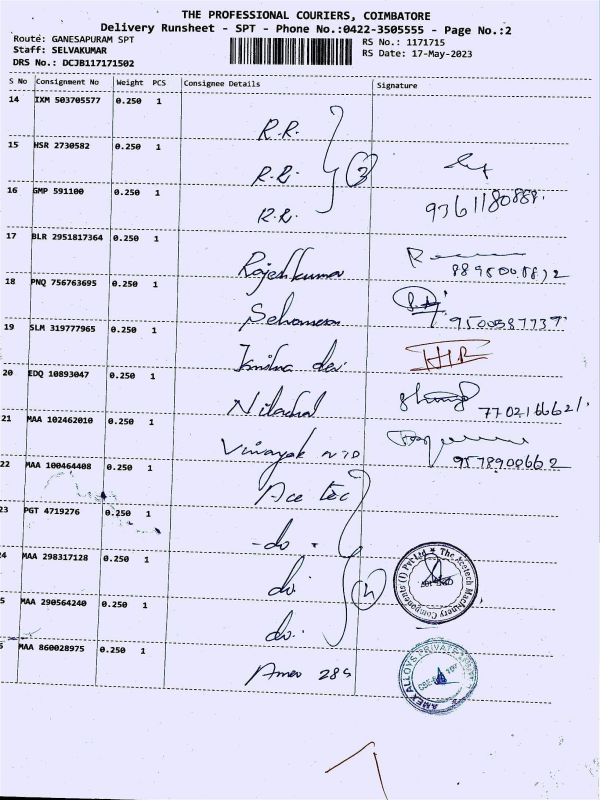 THE PROFESSIONAL COURIERS, COIMBATORE
Delivery Runsheet - SPT - Phone No.:0422-3505555 - Page No.:2
Route: GANESAPURAM SPT
Staff: SELVAKUMAR
DRS No.: DCJB117171502
RS No.: 1171715
RS Date: 17-May-2023
S No Consignment No Weight PCS Consignee Details Signature
14 IXM 503705577 0.250 1 R.R.
15 HSR 2730582 0.250 1 R.R.
16 GMP 591100 0.250 1 R.R.
3
9361180888.
17 BLR 2951817364 0.250 1 Rajeshkumar
18 PNQ 756763695 0.250 1
9500587737
19 SLM 319777965 0.250 1
20 EDQ 10893047 0.250 1
7702166621.
21 MAA 102462010 0.250 1 Vinayak
9578900662
22 MAA 100464408 0.250 1 Ace tec
23 PGT 4719276 0.250 1 -do-
24 MAA 298317128 0.250 1 do.
5 MAA 290564240 0.250 1 do.
4
The Acetech Machinery Components (I) Pvt Ltd
6 MAA 860028975 0.250 1 Amex 285
AMEX ALLOYS PRIVATE LIMITED